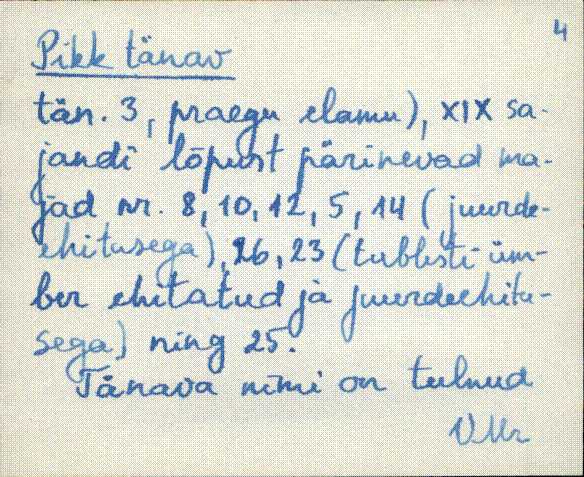 4
Pikk tänav
tän. 3, praegu elamu), XIX sa-
jandi lõpust pärinevad ma-
jad nr. 8, 10, 12, 5, 14 (juurde-
ehitusega), 26, 23 (tublisti üm-
ber ehitatud ja juurdeehitu-
sega) ning 25.
Tänava nimi on tulnud